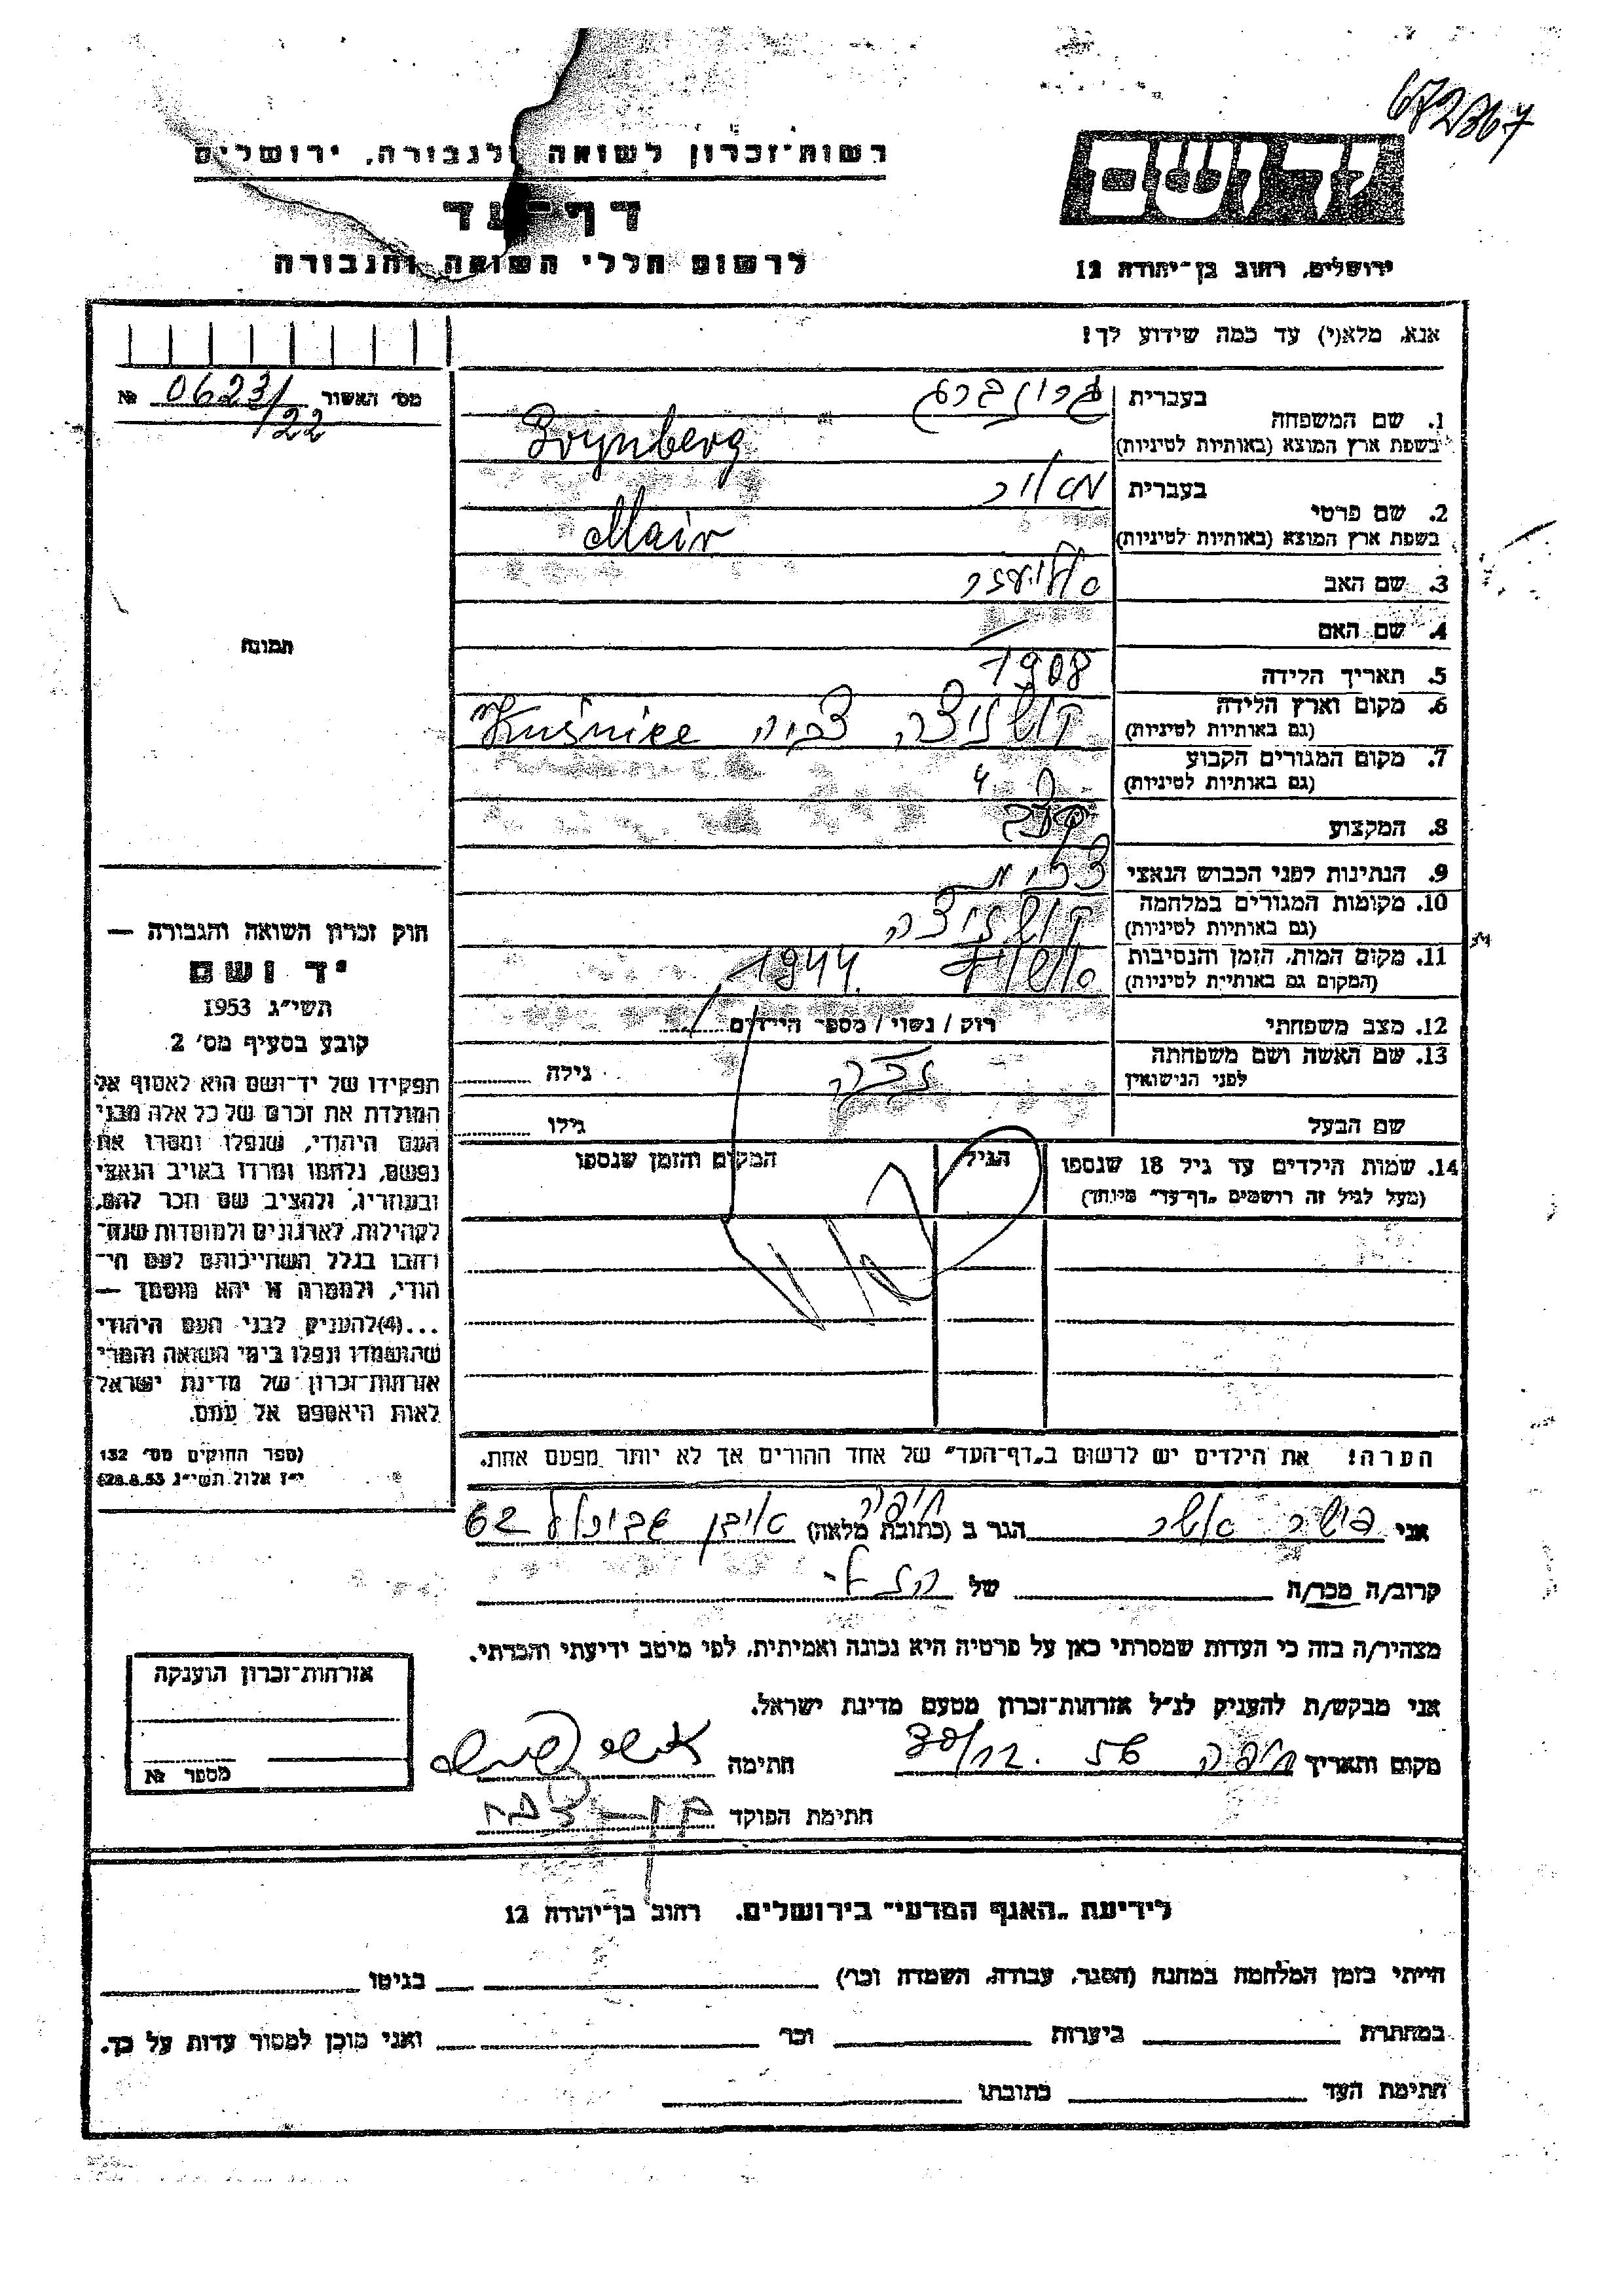 672367
רשות־זכרון לשואה ולגבורה, ירושלים
יד ושם
דף־עד
לרשום חללי השואה והגבורה
ירושלים, רחוב בן־יהודה 12
אנא, מלא(י) עד כמה שידוע לך!
מס׳ האשור 06231/22 №
1. שם המשפחה
בעברית גרונברג
בשפת ארץ המוצא (באותיות לטיניות) Grynberg
2. שם פרטי
בעברית מאיר
בשפת ארץ המוצא (באותיות לטיניות) Mair
3. שם האב אליעזר
4. שם האם —
5. תאריך הלידה 1908
6. מקום וארץ הלידה
(גם באותיות לטיניות) קושניצה צ׳כיה Kuśnice
7. מקום המגורים הקבוע
(גם באותיות לטיניות)
8. המקצוע
9. הנתינות לפני הכבוש הנאצי
10. מקומות המגורים במלחמה
(גם באותיות לטיניות) קושניצה
11. מקום המות, הזמן והנסיבות
(המקום גם באותיית לטיניות) אושויץ 1944
12. מצב משפחתי רווק / נשוי / מספר הילדים
13. שם האשה ושם משפחתה
לפני הנישואין גילה
שם הבעל גילו
14. שמות הילדים עד גיל 18 שנספו
(מעל לגיל זה רושמים „דף־עד״ מיוחד)
הגיל
המקום והזמן שנספו
הערה! את הילדים יש לרשום ב„דף־העד״ של אחד ההורים אך לא יותר מפעם אחת.
תמונה
חוק זכרון השואה והגבורה —
יד ושם
תשי״ג 1953
קובע בסעיף מס׳ 2
תפקידו של יד־ושם הוא לאסוף אל
המולדת את זכרם של כל אלה מבני
העם היהודי, שנפלו ומסרו את
נפשם, נלחמו ומרדו באויב הנאצי
ובעוזריו, ולהציב שם וזכר להם,
לקהילות, לארגונים ולמוסדות שנח־
רבו בגלל השתייכותם לעם הי־
הודי, ולמטרה זו יהא מוסמך —
...(4)להעניק לבני העם היהודי
שהושמדו ונפלו בימי השואה והמרי
אזרחות־זכרון של מדינת ישראל
לאות היאספם אל עמם.
(ספר החוקים מס׳ 132
י״ז אלול תשי״ג 28.8.53)
אני פישר אשר הגר ב (כתובת מלאה) חיפה אבן גבירול 62
קרוב/ה מכר/ה של הנ״ל
מצהיר/ה בזה כי העדות שמסרתי כאן על פרטיה היא נכונה ואמיתית, לפי מיטב ידיעתי והכרתי.
אני מבקש/ת להעניק לנ״ל אזרחות־זכרון מטעם מדינת ישראל.
מקום ותאריך חיפה 30/12. 56 חתימה
חתימת הפוקד
אזרחות־זכרון הוענקה
מספר №
לידיעת „האגף המדעי״ בירושלים, רחוב בן־יהודה 12
הייתי בזמן המלחמה במחנה (הסגר, עבודה, השמדה וכו׳) בגיטו
במחתרת ביערות וכו׳ ואני מוכן למסור עדות על כך.
חתימת העד כתובתו